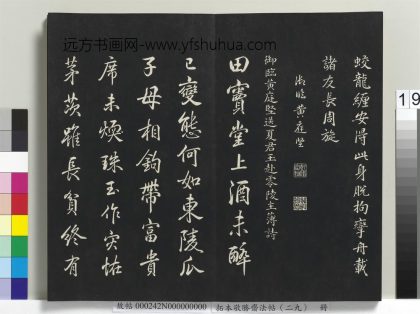 远方书画网-www.yfshuhua.com
蛟龍纏安得此身脫拘攣舟載
諸友長周旋
御臨黃庭堅
御臨黃庭堅送夏君玉赴零陵主簿詩
田竇堂上酒未醉
已變態何如東陵瓜
子母相鉤帶富貴
席未煖珠玉作災恠
茅茨雖長貧終有
19
故帖 000242N000000000 拓本敬勝齋法帖(二九) 冊